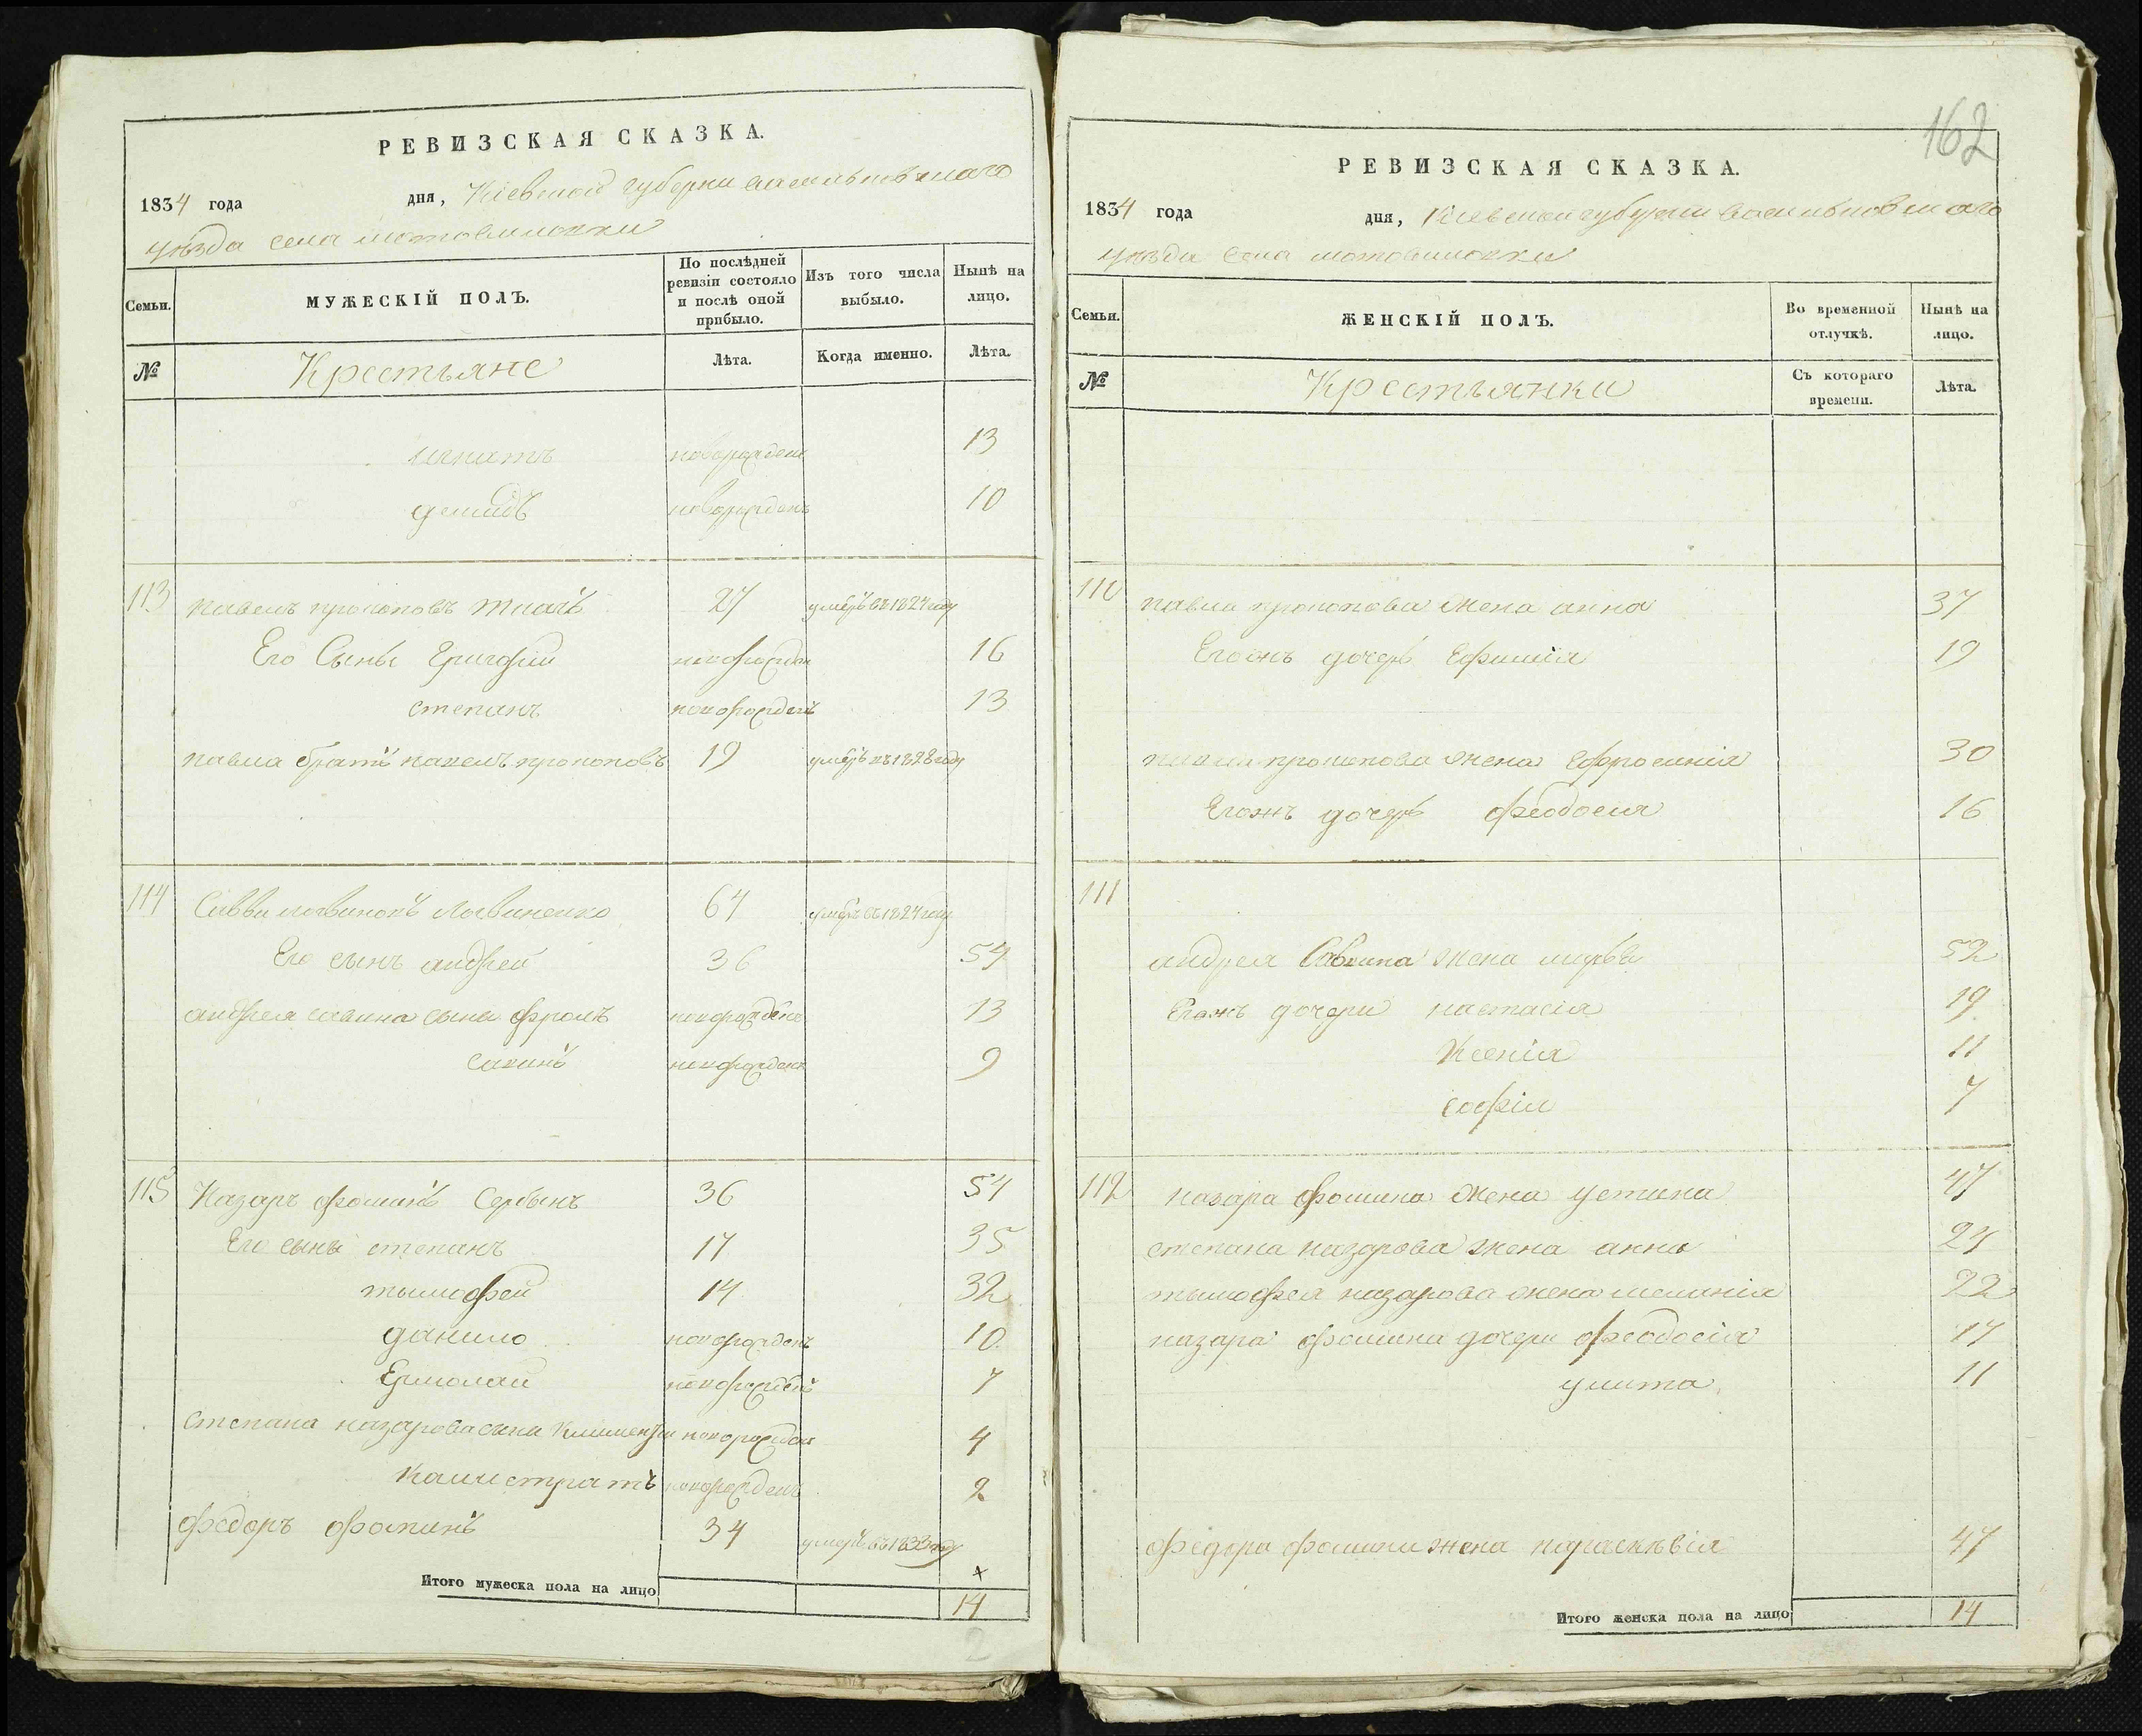 РЕВИЗСКАЯ СКАЗКА.
1834 года дня, Кіевской губерни васильковскаго
уѣзда села мотовиловки
Семьи.
МУЖЕСКІЙ ПОЛЪ.
По послѣдней ревизіи состояло и послѣ оной прибыло.
Изъ того числа выбыло.
Нынѣ на лицо.
№
Крестьяне
Лѣта.
Когда именно.
Лѣта.
игнатъ новорожденъ 13
демидъ новорожденъ 10
113 павелъ прокоповъ ткачъ 27 умеръ въ 1824 году
Его Сыны Григорий новорожден 16
степанъ новорожденъ 13
павла братъ павелъ прокоповъ 19 умеръ въ 1828 году
114 Савва логвиновъ Логвиненко 64 умеръ въ 1824 году
Его сынъ андрей 36 54
андрея савина сыны фролъ новорожденъ 13
савинъ новорожденъ 9
115 Назаръ фоминъ Сербинъ 36 54
Его сыны степанъ 17 35
тымофей 14 32
данило новорожденъ 10
Ермолай новорожденъ 7
степана назарова сына новорожден 4
калистратъ новорожденъ 2
федоръ фоминъ 34 умеръ въ 1833 году
Итого мужеска пола на лицо 14
162
РЕВИЗСКАЯ СКАЗКА.
1834 года дня, Кіевской губерни васильковскаго
уѣзда села мотовиловки
Семьи.
ЖЕНСКІЙ ПОЛЪ.
Во временной отлучкѣ.
Нынѣ на лицо.
№
Крестьянки
Съ котораго времени.
Лѣта.
110 павла прокопова жена анна 37
Егожъ дочеръ Ефимія 19
павла прокопова жена Ефросинія 30
Егожъ дочеръ феодосия 16
111
андрея Савина жена марфа 52
Егожъ дочери настасія 19
Ксенія 11
софія 7
112 назара фомина жена устина 47
степана назарова жена анна 27
тымофея назарова жена меланія 22
назара фомина дочери феодосія 17
улита 11
федора фомина жена параскѣвія 47
Итого женска пола на лицо 14